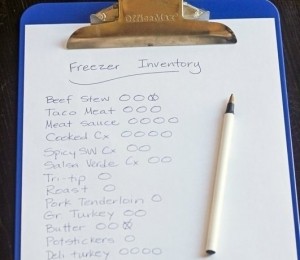 OfficeMax
Freezer Inventory
Beef Stew
Taco Meat
Meat Sauce
Cooked Cx
Spicy SW Cx
Salsa Verde Cx
Tri-tip
Roast
Pork Tenderloin
Gr Turkey
Butter
Potstickers
Deli turkey